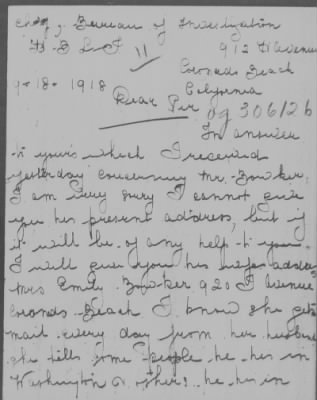 Bureau of Investigation
912 H Avenue
Coronado Beach
9-18-1918
California
Dear Sir
og 306126
In answer
to yours which I received
yesterday concerning Mr. Bowker
I am very sorry I cannot give
you his present address, but if
it will be of any help to you
I will give you his wifes address
Mrs Emily Bowker 920 I Avenue
Coronado Beach I know she gets
mail every day from her husband
she tells some people he his in
Washington & others he his in